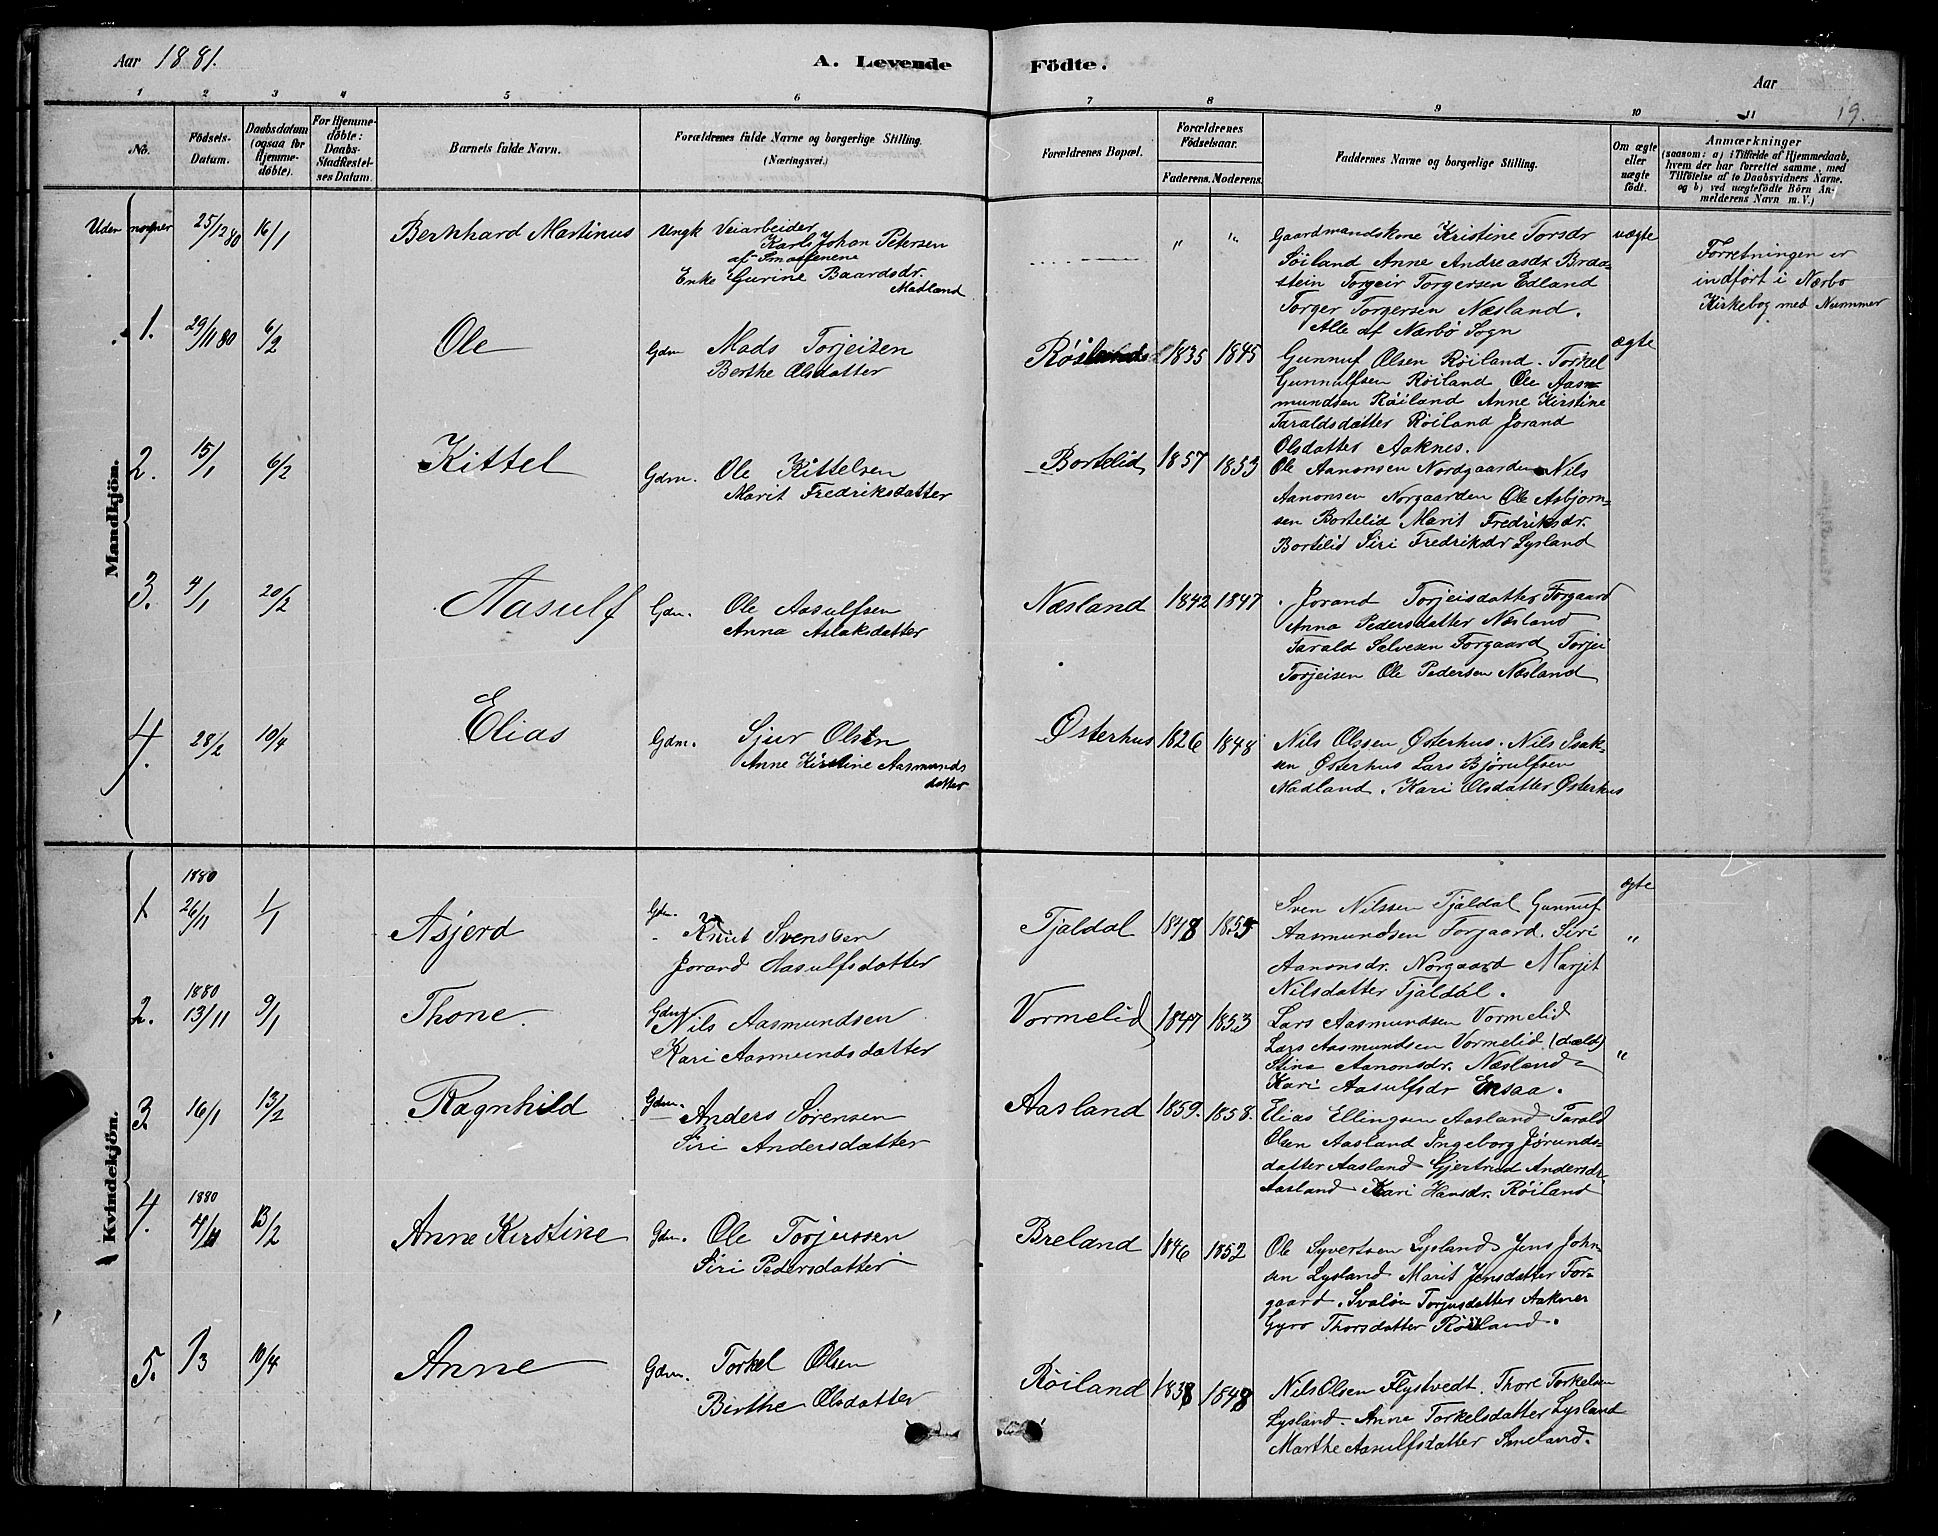 Aar 1881.
A. Levende Födte.
Aar
19.
1 2 3 4 5 6 7 8 9 10 11
No.
Födsels-
Datum.
Daabsdatum
(ogsaa for
Hjemme-
döbte).
For Hjemme-
döbte:
Daabs-
Stadfæstel-
ses Datum.
Barnets fulde Navn.
Forældrenes fulde Navne og borgerlige Stilling.
(Næringsvei.)
Forældrenes Bopæl.
Forældrenes
Födselsaar.
Faderens. Moderens.
Faddernes Navne og borgerlige Stilling.
Om ægte
eller
uægte
födt.
Anmærkninger
(saasom: a) i Tilfælde af Hjemmedaab,
hvem der har forrettet samme, med
Tilföielse af to Daabsvidners Navne.
og b) ved uægtefödte Börn An-
melderens Navn m. V.)
Mandkjön.
Uden 25/12 80 16/1 Bernhard Martinus
Ungk Veiarbeider
Karl Johan Petersen
af Smaalenene
Enke Gurine Baardsdr.
Madland
" "
Gaardmandskone Kristine Torsdr
Söiland Anne Andreasdr Braa-
stein Torgeir Torgersen Edland
Torger Torgersen Næsland.
Alle af Nærbö Sogn
uægte
Forretningen er
indfört i Nærbo
Kirkebog med Nummer
1. 29/11 80 6/2 Ole
Gdm Mads Torjeisen
Berthe Olsdatter
1835 1845
Gunnuf Olsen Röiland. Torkel
Gunnulfsen Röiland, Ole Aas-
mundsen Röiland Anne Kirstine
Taraldsdatter Röiland Jorand
Olsdatter Aaknes.
ægte
2. 15/1 6/2 Kittel
Gdm. Ole Kittelsen
Marit Fredriksdatter
Bortelid 1857 1853
Ole Aanonsen Nordgaarden Nils
Aanonsen Norgaarden Ole Asbjorn-
sen Bortelid Marit Fredriksdr.
Bortelid Siri Fredriksdr Lysland
3. 4/1 20/2 Aasulf
Gdm. Ole Aasulfsen
Anna Aslaksdatter
Næsland 1842 1847
Jorand Torjeisdatter Forgaard
Anna Pedersdatter Næsland
Tarald Salvesen Forgaard, Torjei
Torjeisen Ole Pedersen Næsland
4. 28/2 10/4 Elias
Gdm. Sjur Olsen
Anne Kirstine Aasmunds
datter
Østerhus 1826 1848
Nils Olssen Østerhus. Nils Isak-
sen Østerhus Lars Bjørulfsen
Madland. Kari Olsdatter Østerhus
Kvindekjön.
1 1880 26/11 1/1 Asjerd
Gdm. Knut Svensen
Jorand Aasulfsdatter
Tjaldal 1848 1855
Sven Nilssen Tjaldal Gunnuf
Aasmundsen Forgaard. Siri
Aanonsdr. Norgaard Marjit
Nilsdatter Tjaldal.
ægte
"
2. 1880 13/11 9/1 Thone.
Gdm Nils Aasmundsen
Kari Aasmundsdatter
Vormelid 1847 1853
Lars Aasmundsen Vormelid
Lars Aasmundsen Vormelid,
Stina Aanonsdr. Næsland
Kari Aasulfsdr Ensaa.
"
3. 16/1 13/2 Ragnhild
Gdm. Anders Sørensen
Siri Andersdatter
Aasland 1859. 1858.
Elias Ellingsen Aasland Tarald
Olsen Aasland Ingeborg Jørunds-
datter Aasland Gjertrud Andersdr
Aasland Kari Hansdr. Röiland
4. 1880 4/11 13/2 Anne Kirstine
Gdm. Ole Torjussen
Siri Pedersdatter
Breland 1846 1852
Ole Syvertsen Lysland Jens John-
sen Lysland Marit Jensdatter For-
gaard. Svaløu Torjusdatter Aaknes
Gyro Thorsdatter Röiland.
5. 1/3 10/4 Anne
Gdm. Torkel Olsen
Birthe Olsdatter
Röiland 1838 1848
Nils Olsen Flystvedt. Thore Torkelsen
Lysland. Anne Torkelsdatter Lysland
Marthe Aasulfsdatter Smeland.